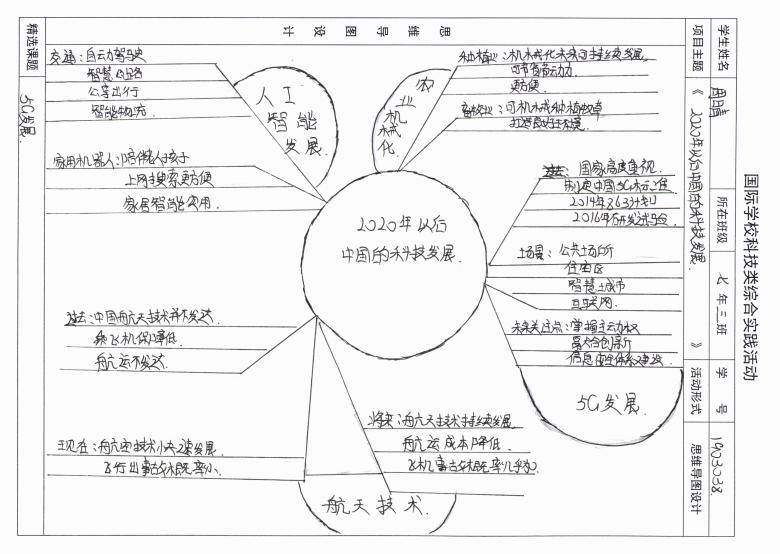 国际学校科技类综合实践活动
学生姓名
所在班级 七年三班
学号 1903038.
项目主题 《2020年以后中国的科技发展.》
活动形式 思维导图设计
思维导图设计
精选课题 5G发展.
2020年以后
中国的科技发展.
人工
智能
发展.
交通:自动驾驶
智慧公路
公享出行
智能物流.
家用机器人:陪伴老人孩子
上网搜索更方便
家居智能实用.
农
业
机
械
化.
种植业:机械化未来可持续发展.
可节省劳动力
更方便.
过去: 国家高度重视.
制定中国5G标准
2014年863计划
2016年研发试验.
场景: 公共场所
住宅区
智慧城市
互联网.
未来关注点:掌握主动权
融合创新
信息安全体系建设.
5G发展.
过去:中国航天技术并不发达.
乘飞机保障低.
航运不发达.
现在:航空技术快速发展.
飞行出事故概率小.
将来:航天技术持续发展.
航运成本降低.
航天技术.